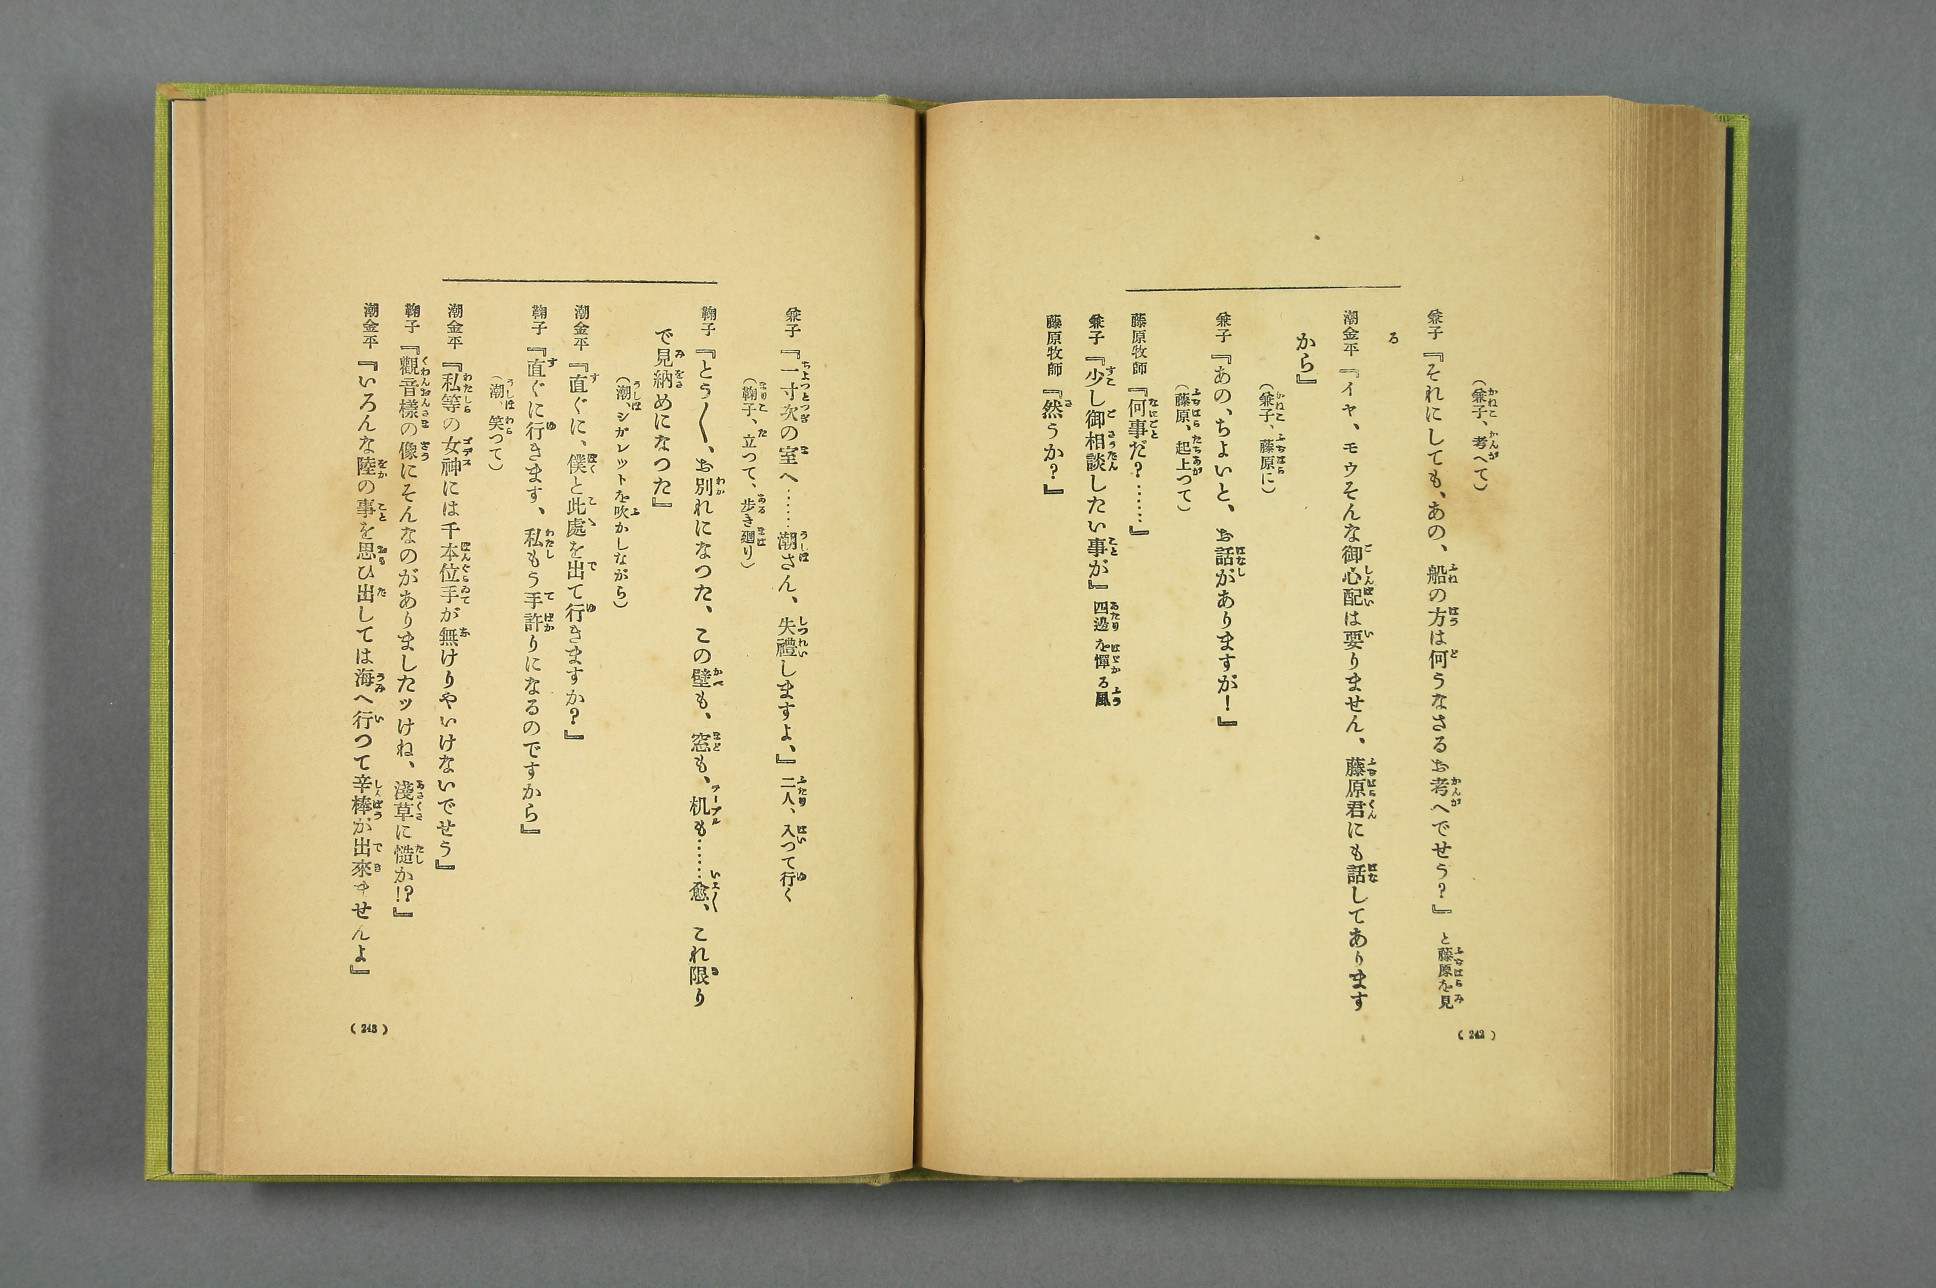 （兼子、考へて）
兼子『それにしても、あの、船の方は何うなさるお考へでせう？』と藤原を見
る
潮金平『イヤ、モウそんな御心配は要りません、藤原君にも話してあります
から』
（兼子、藤原に）
兼子『あの、ちよいと、お話がありますが！』
（藤原、起上つて）
藤原牧師『何事だ？……』
兼子『少し御相談したい事が』四邊を憚る風
藤原牧師『然うか？』
（242）
兼子『一寸次の室へ……潮さん、失禮しますよ、』二人、入つて行く
（鞠子、立つて、歩き廻り）
鞠子『とう〱、お別れになつた、この壁も、窓も、机も……愈、これ限り
で見納めになつた』
（潮、シガレットを吹かしながら）
潮金平『直ぐに、僕と此處を出て行きますか？』
鞠子『直ぐに行きます、私もう手許りになるのですから』
（潮、笑つて）
潮金平『私等の女神には千本位手が無けりやいけないでせう』
鞠子『觀音樣の像にそんなのがありましたッけね、淺草に慥か!?』
潮金平『いろんな陸の事を思ひ出しては海へ行つて辛棒が出來ませんよ』
（243）